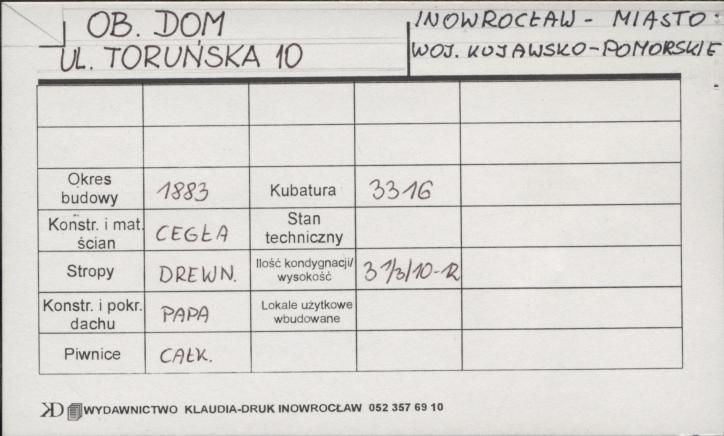 OB. DOM
UL. TORUŃSKA 10
INOWROCŁAW - MIASTO
WOJ. KUJAWSKO-POMORSKIE
Okres budowy 1883 Kubatura 3316
Konstr. i mat. ścian CEGŁA Stan techniczny
Stropy DREWN. Ilość kondygnacji/ wysokość
Konstr. i pokr. dachu PAPA Lokale użytkowe wbudowane
Piwnice CAŁK.
KD WYDAWNICTWO KLAUDIA-DRUK INOWROCŁAW 052 357 69 10